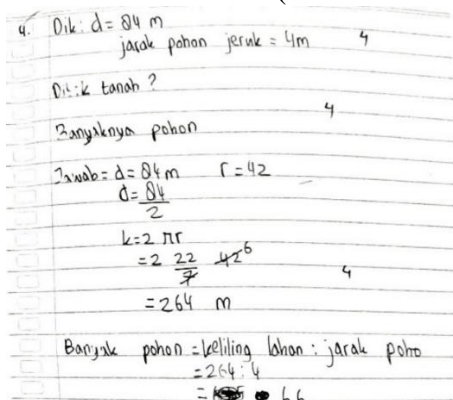 4. Dik: d = 84 m
jarak pohon jeruk = 4m 4
Dit: k tanah?
4
Banyaknya pohon
Jawab = d = 84 m r = 42
d = 84/2
k = 2 πr
= 2 22/7 42 6
4
= 264 m
Banyak pohon = keliling lahan : jarak poho
= 264 : 4
= 66